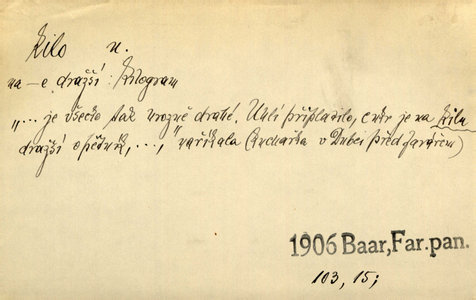 Kilo n.
na –e dražší : Kilogram
„... je všecko tak hrozně drahé. Uhlí připlatilo, cukr je na kile
dražší o pětník, ...," naříkala (kuchařka v Dubči před farářem)
1906 Baar, Far. pan.
103, 15;